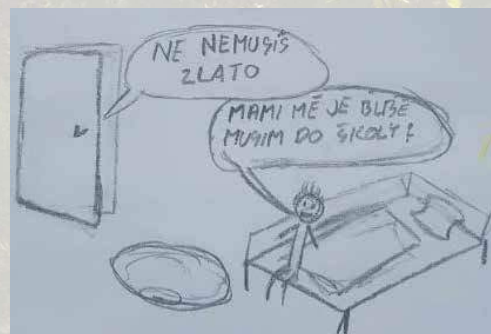 NE NEMUSÍŠ
ZLATO
MAMI MĚ JE BLBĚ
MUSIM DO ŠKOLY?